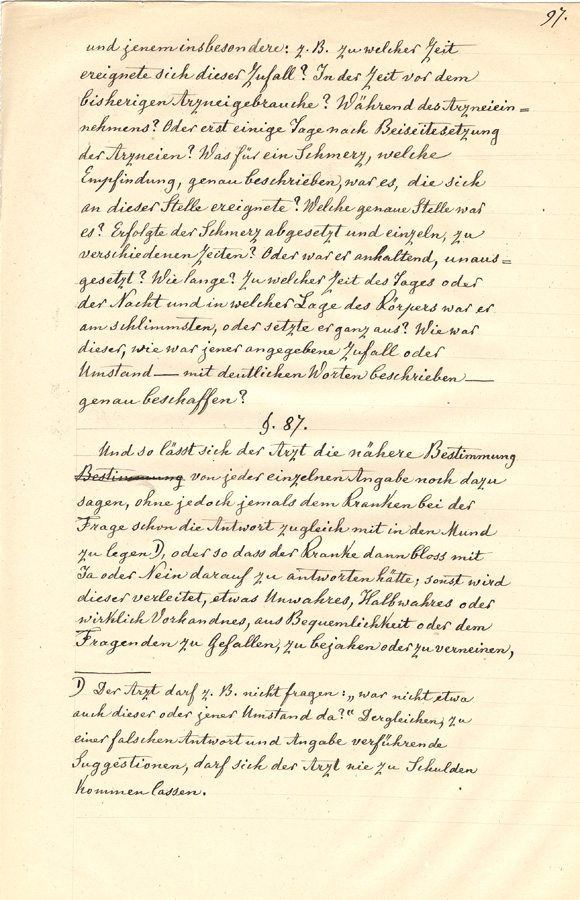 97.
und jenem insbesondere: z. B. zu welcher Zeit
ereignete sich dieser Zufall? In der Zeit vor dem
bisherigen Arzneigebrauche? Während des Arzneiein=
nehmens? Oder erst einige Tage nach Beiseitesetzung
der Arzneien? Was für ein Schmerz, welche
Empfindung, genau beschrieben, war es, die sich
an dieser Stelle ereignete? Welche genaue Stelle war
es? Erfolgte der Schmerz abgesetzt und einzeln, zu
verschiedenen Zeiten? Oder war er anhaltend, unaus=
gesetzt? Wie lange? Zu welcher Zeit des Tages oder
der Nacht und in welcher Lage des Körpers war er
am schlimmsten, oder setzte er ganz aus? Wie war
dieser, wie war jener angegebene Zufall oder
Umstand — mit deutlichen Worten beschrieben —
genau beschaffen?
§. 87.
Und so lässt sich der Arzt die nähere Bestimmung
Bestimmung von jeder einzelnen Angabe noch dazu
sagen, ohne jedoch jemals dem Kranken bei der
Frage schon die Antwort zugleich mit in den Mund
zu legen 1), oder so dass der Kranke dann bloss mit
Ja oder Nein darauf zu antworten hätte; sonst wird
dieser verleitet, etwas Unwahres, Halbwahres oder
wirklich Vorhandnes, aus Bequemlichkeit oder dem
Fragenden zu Gefallen, zu bejahen oder zu verneinen,
1) Der Arzt darf z. B. nicht fragen: „war nicht etwa
auch dieser oder jener Umstand da?" Dergleichen, zu
einer falschen Antwort und Angabe verführende
Suggestionen, darf sich der Arzt nie zu Schulden
kommen lassen.